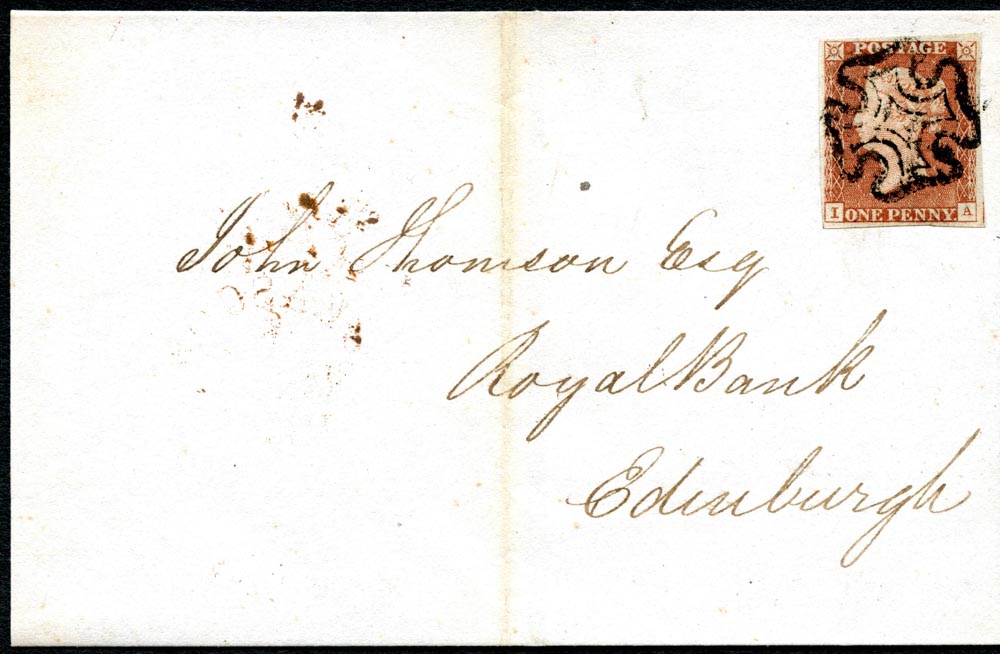 POSTAGE
I ONE PENNY. A
John Thomson Esq
Royal Bank
Edinburgh